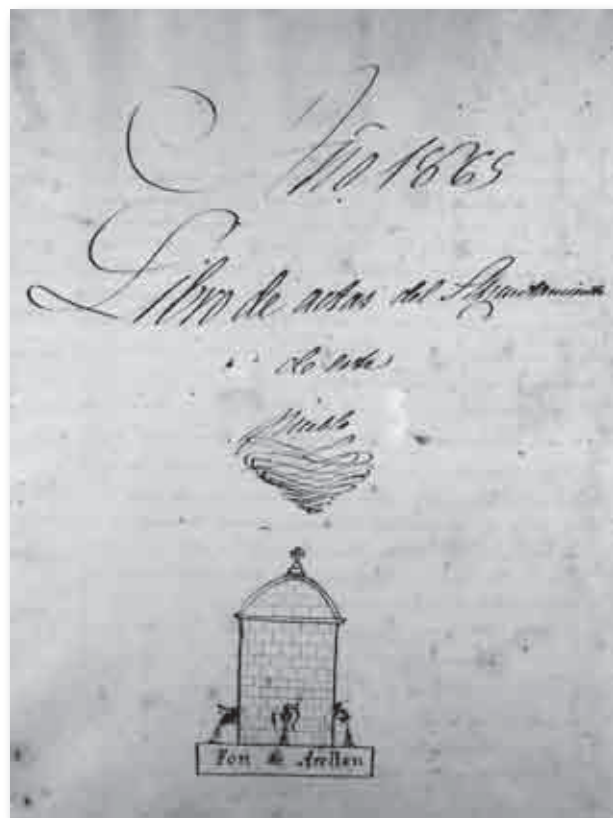 Año 1865
Libro de actas del Ayuntamiento
de este
pueblo
Fon de